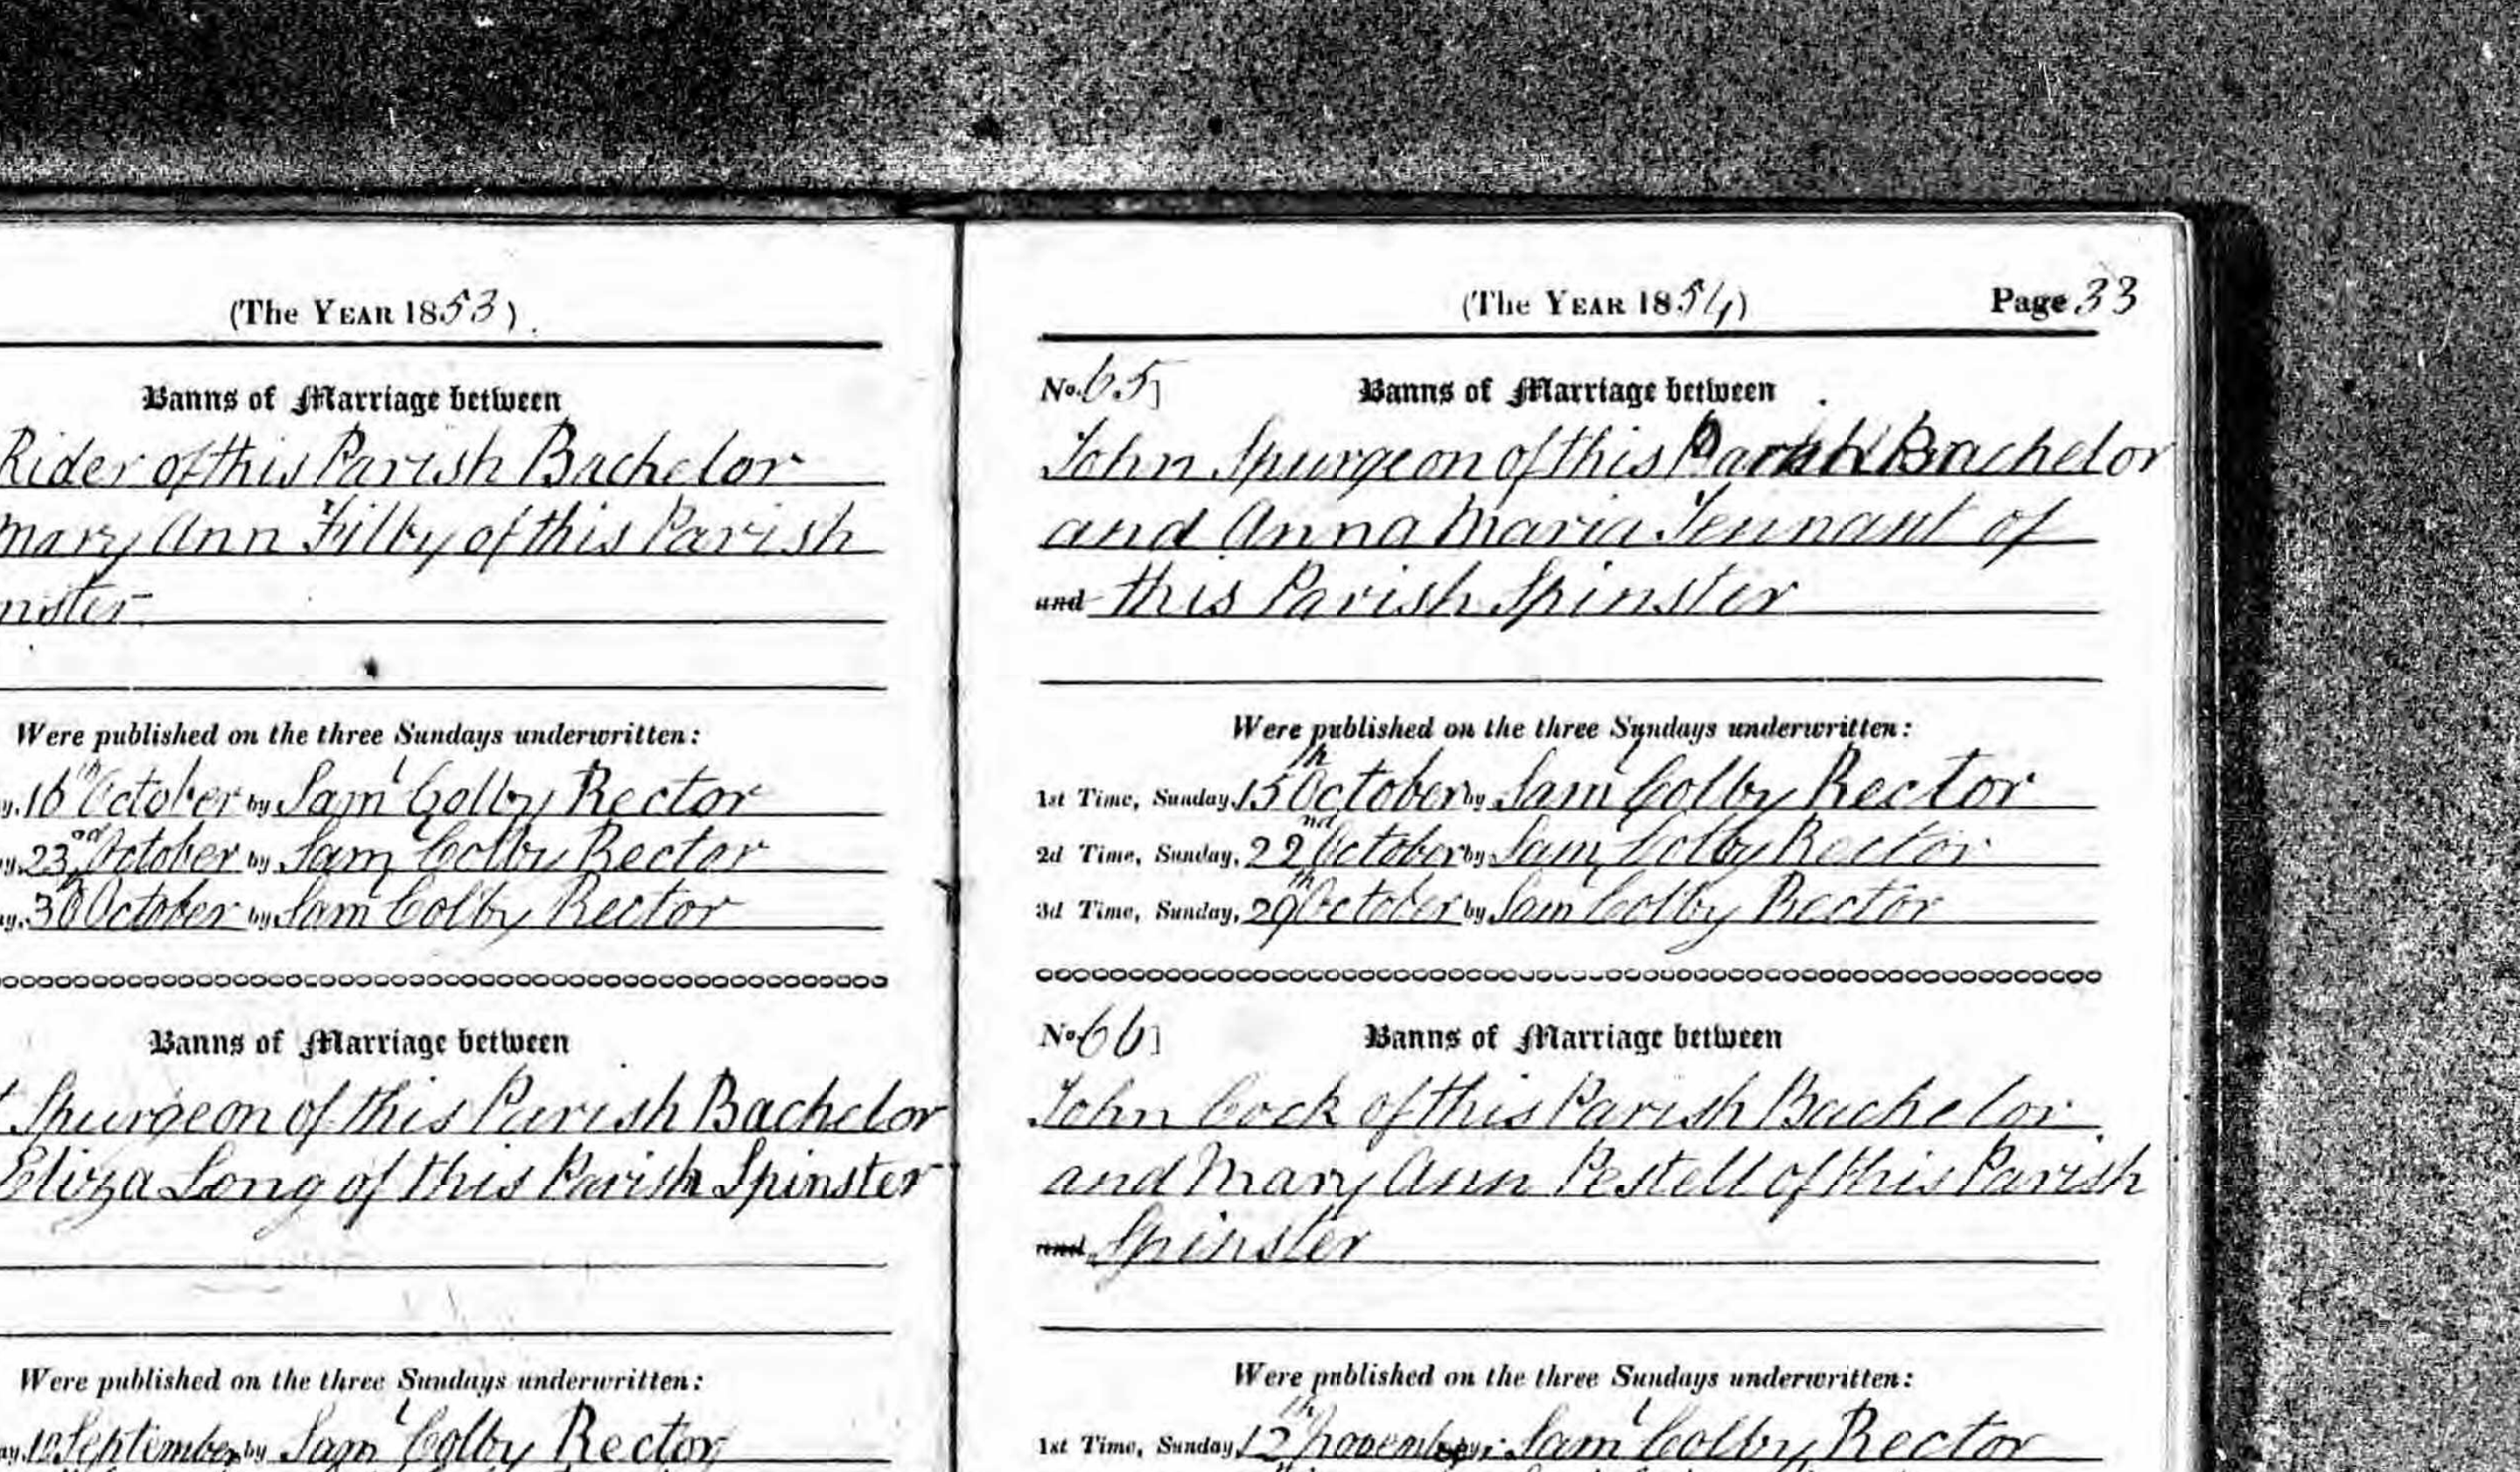 (The YEAR 1853)
Banns of Marriage between
Rider of this Parish Bachelor
Mary Ann Filby of this Parish
nster
Were published on the three Sundays underwritten:
16th October by Saml Colby Rector
23rd October by Saml Colby Rector
30 October by Saml Colby Rector
Banns of Marriage between
Spurgeon of this Parish Bachelor
Eliza Long of this Parish Spinster
Were published on the three Sundays underwritten:
September by Saml Colby Rector
(The YEAR 1854) Page 33
No. 65] Banns of Marriage between
John Spurgeon of this Parish Bachelor
and Anna Maria Tennant of
and this Parish Spinster
Were published on the three Sundays underwritten:
1st Time, Sunday, 15th October by Saml Colby Rector
2d Time, Sunday, 22nd October by Saml Colby Rector
3d Time, Sunday, 29th October by Saml Colby Rector
No. 66] Banns of Marriage between
John Cock of this Parish Bachelor
and Mary Ann Pestell of this Parish
and Spinster
Were published on the three Sundays underwritten:
1st Time, Sunday, 12th November by Saml Colby Rector